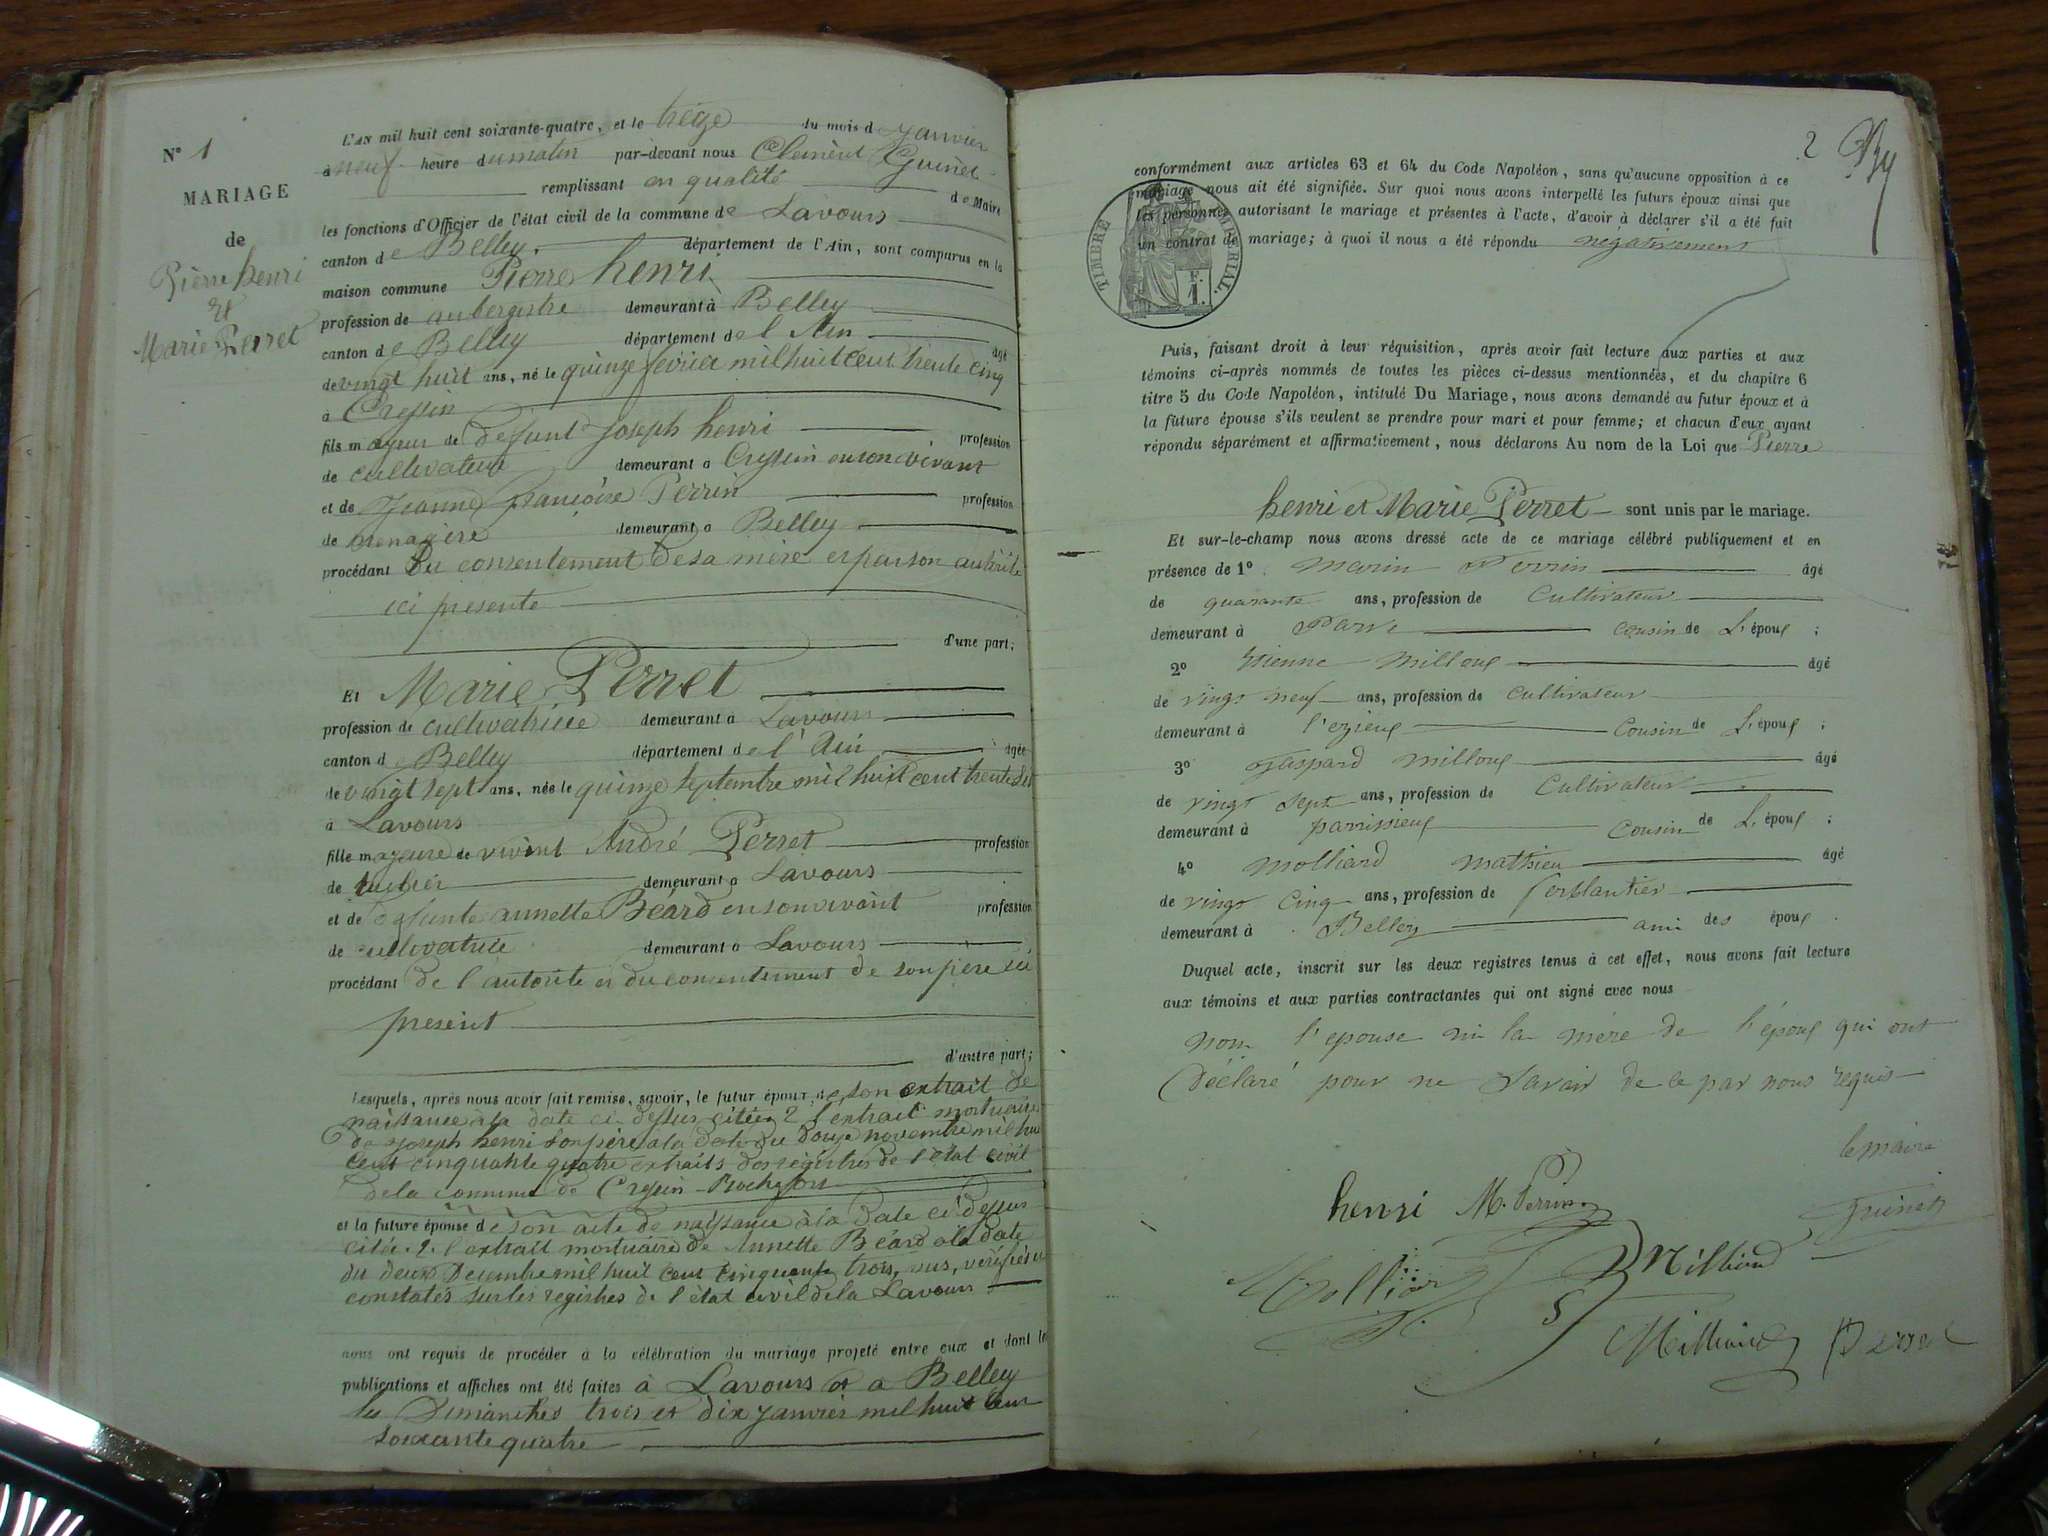 N° 1
MARIAGE
de
Pierre henri
et
Marie Perret
L'AN mil huit cent soixante-quatre, et le treize du mois de Janvier
à neuf heure du matin par-devant nous Clement Guinet
remplissant en qualité de Maire
les fonctions d'Officier de l'état civil de la commune de Lavours
canton de Belley département de l'Ain, sont comparus en la
maison commune Pierre henri
profession de aubergiste demeurant à Belley
canton de Belley département de l'Ain âgé
de vingt huit ans, né le quinze fevrier mil huit cent trente cinq
à Cressin
fils majeur de defunt Joseph henri profession
de cultivateur demeurant à Cressin en son vivant
et de Jeanne françoise Perrin profession
de menagere demeurant à Belley
procédant Du consentement de sa mère et par son autorité
ici presente
d'une part;
Et Marie Perret
profession de cultivatrice demeurant à Lavours
canton de Belley département de l'Ain âgée
de vingt sept ans, née le quinze septembre mil huit cent trente six
à Lavours
fille majeure de vivant André Perret profession
de demeurant à Lavours
et de defunte annette Béard en son vivant profession
de cultivatrice demeurant à Lavours
procédant de l'autorité et du consentement de son père ici
present
d'autre part;
Lesquels, après nous avoir fait remise, savoir, le futur époux, de son extrait de
naissance à la date ci dessus citée, 2 l'extrait mortuaire
de Joseph henri son père a la date du douze novembre mil huit
cent cinquante quatre extraits des registres de l'état civil
de la commune de Cressin Rochefort
et la future épouse de son acte de naissance à la date ci dessus
citée. 2. l'extrait mortuaire de Annette Béard a la date
du deux Decembre mil huit cent cinquante trois, vus, vérifiés et
constatés sur les registres de l'état civil de la Lavours
nous ont requis de procéder à la célébration du mariage projeté entre eux et dont les
publications et affiches ont été faites à Lavours et a Belley
les Dimanches trois et dix janvier mil huit cent
soixante quatre
2
conformément aux articles 63 et 64 du Code Napoléon, sans qu'aucune opposition à ce
mariage nous ait été signifiée. Sur quoi nous avons interpellé les futurs époux ainsi que
les personnes autorisant le mariage et présentes à l'acte, d'avoir à déclarer s'il a été fait
un contrat de mariage; à quoi il nous a été répondu négativement
TIMBRE IMPERIAL
F.
1.
Puis, faisant droit à leur réquisition, après avoir fait lecture aux parties et aux
témoins ci-après nommés de toutes les pièces ci-dessus mentionnées, et du chapitre 6
titre 5 du Code Napoléon, intitulé Du Mariage, nous avons demandé au futur époux et à
la future épouse s'ils veulent se prendre pour mari et pour femme; et chacun d'eux ayant
répondu séparément et affirmativement, nous déclarons Au nom de la Loi que Pierre
henri et Marie Perret sont unis par le mariage.
Et sur-le-champ nous avons dressé acte de ce mariage célébré publiquement et en
présence de 1° Marin Perrin âgé
de quarante ans, profession de Cultivateur
demeurant à Parve cousin de L'époux;
2° Etienne Milloux âgé
de vingt neuf ans, profession de Cultivateur
demeurant à Cousin de L'époux;
3° Gaspard Milloux âgé
de vingt sept ans, profession de Cultivateur
demeurant à parrissieux Cousin de L'époux;
4° Molliard Mathieu âgé
de vingt Cinq ans, profession de ferblantier
demeurant à Belley ami des époux.
Duquel acte, inscrit sur les deux registres tenus à cet effet, nous avons fait lecture
aux témoins et aux parties contractantes qui ont signé avec nous
non l'épouse ni la mère de l'époux qui ont
Déclaré pour ne Savoir de ce par nous requis
le maire
henri M. Perrin Guinet
Perret